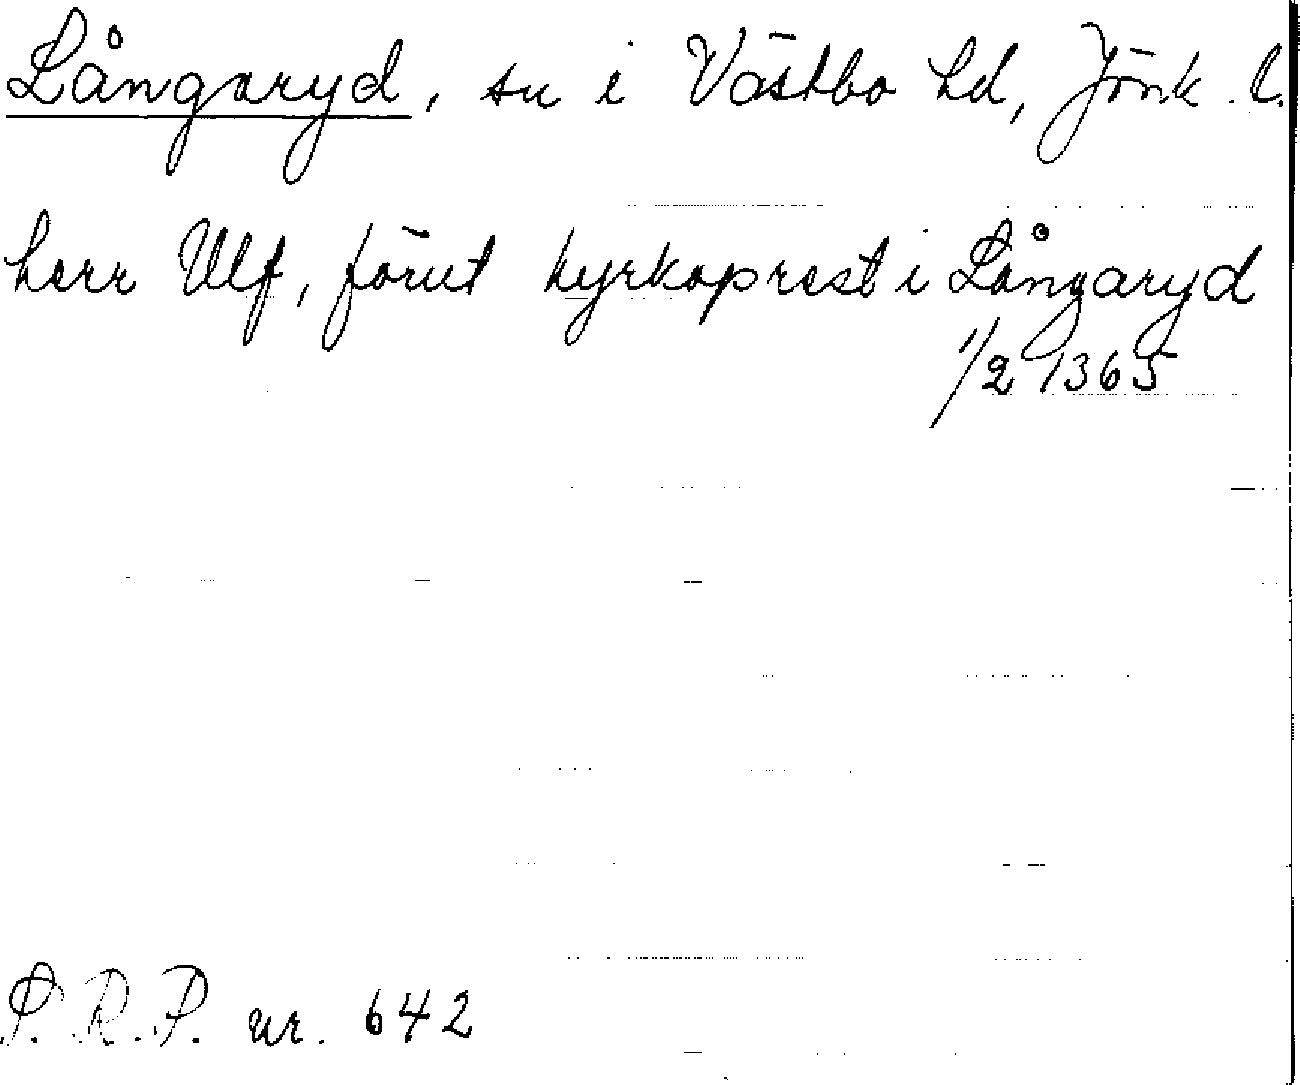 Långaryd, sn i Västbo hd, Jönk. l.
herr Ulf, förut kyrkoprest i Långaryd
1/2 1365
P. R. P. nr. 642